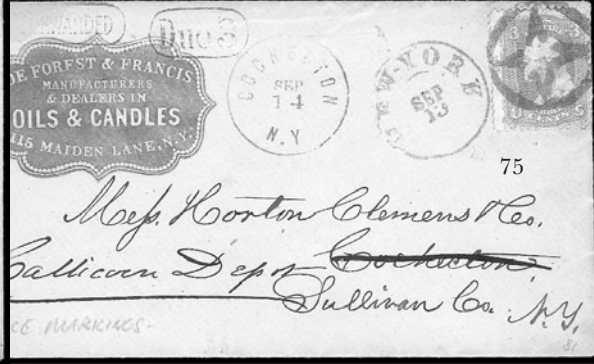 FORWARDED
Due 3
DE FOREST & FRANCIS
MANUFACTURERS
& DEALERS IN
OILS & CANDLES
115 MAIDEN LANE, N.Y.
COCHECTON
SEP
14
N.Y
NEW-YORK
SEP
13
CENTS
75
Mess. Horton Clemens & Co.
Callicoon Depot Cochecton
Sullivan Co. N.Y.
CE MARKINGS-
81